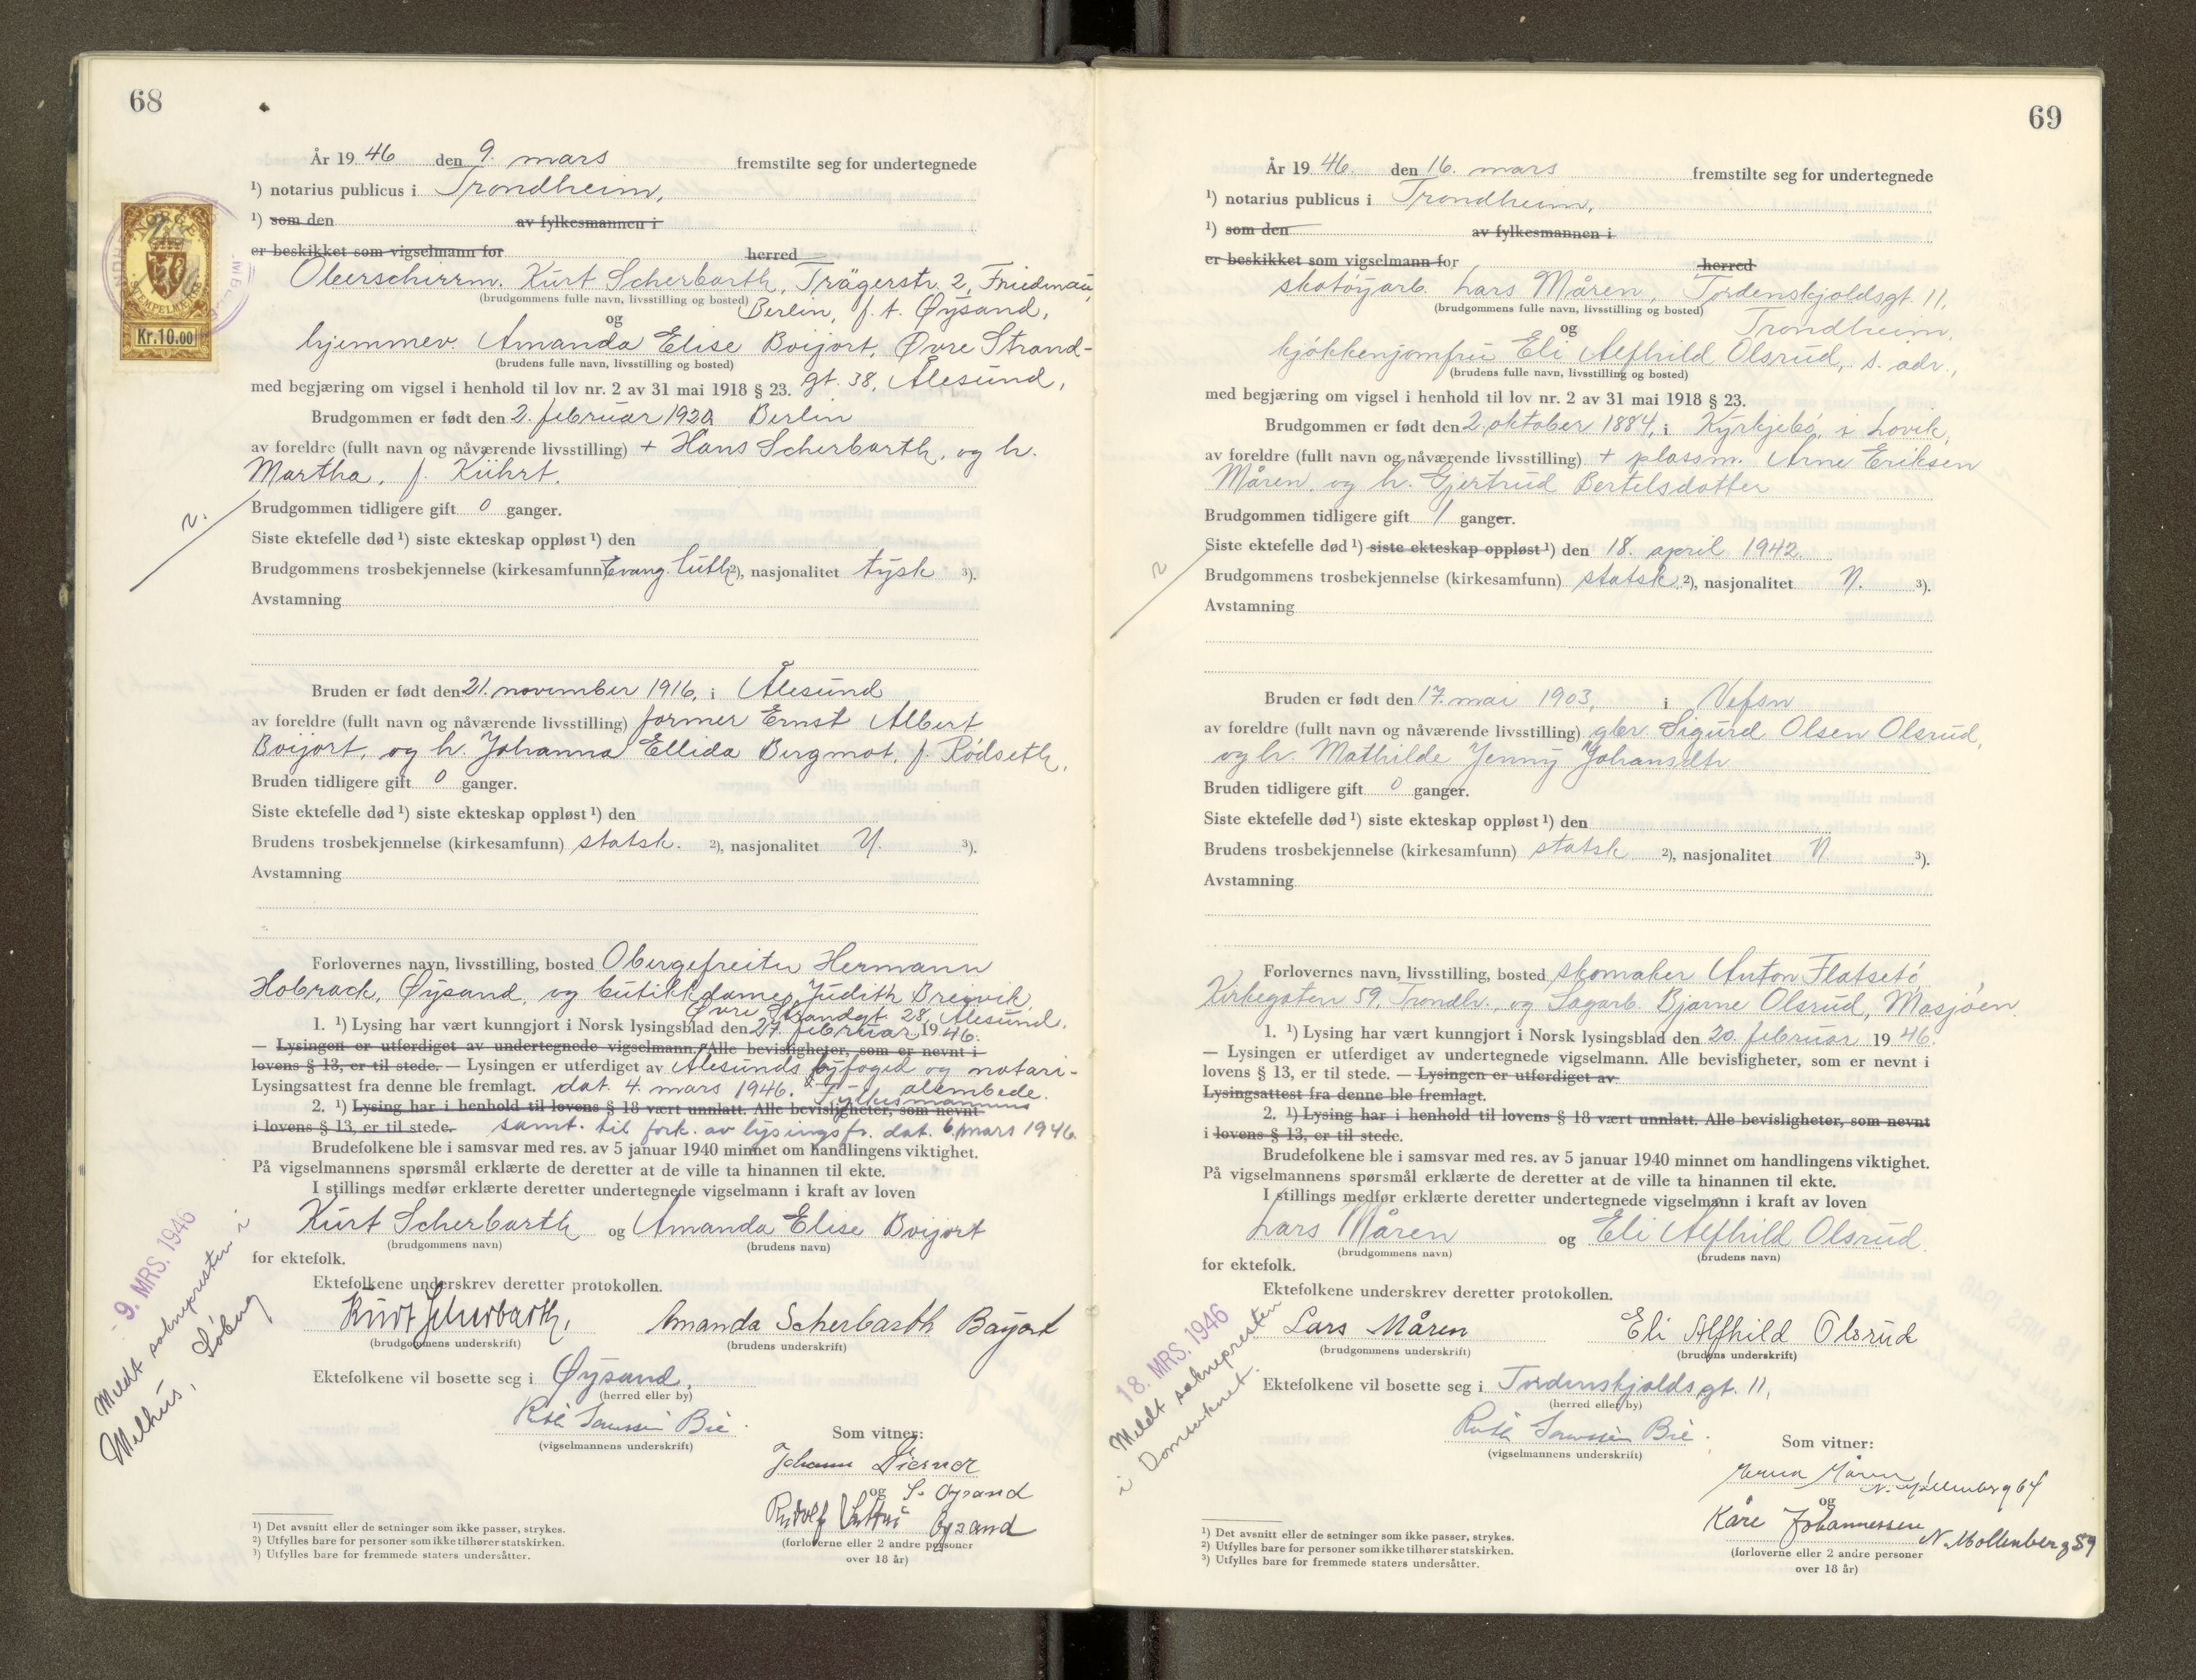 68
År 1946 den 9. mars fremstilte seg for undertegnede
¹) notarius publicus i Trondheim,
¹) som den av fylkesmannen i
er beskikket som vigselmann for herred
NORGE
STEMPELMERKE
Kr.10.00
Oberschirrm. Kurt Scherbarth, Trägerstr. 2, Friedenau,
(brudgommens fulle navn, livsstilling og bosted) Berlin, f. t. Øysand,
og
hjemmev. Amanda Elise Boijort, Øvre Strand-
(brudens fulle navn, livsstilling og bosted)
med begjæring om vigsel i henhold til lov nr. 2 av 31 mai 1918 § 23. gt. 38, Ålesund,
Brudgommen er født den 2. februar 1920 Berlin
av foreldre (fullt navn og nåværende livsstilling) + Hans Scherbarth, og h.
Martha, f. Kührt.
Brudgommen tidligere gift 0 ganger.
Siste ektefelle død ¹) siste ekteskap oppløst ¹) den
Brudgommens trosbekjennelse (kirkesamfunn) Evang. luth. ²), nasjonalitet tysk ³).
Avstamning
Bruden er født den 21. november 1916, i Ålesund
av foreldre (fullt navn og nåværende livsstilling) former Ernst Albert
Boijort, og h. Johanna Ellida Bergmot, f. Rödseth,
Bruden tidligere gift 0 ganger.
Siste ektefelle død ¹) siste ekteskap oppløst ¹) den
Brudens trosbekjennelse (kirkesamfunn) statsk. ²), nasjonalitet N. ³).
Avstamning
Forlovernes navn, livsstilling, bosted Obergefreiter Hermann
Hobrack, Øysand, og butikkdame Judith Breivik,
Øvre Strandgt. 28, Ålesund.
1. ¹) Lysing har vært kunngjort i Norsk lysingsblad den 27. februar 1946.
— Lysingen er utferdiget av undertegnede vigselmann. Alle bevisligheter, som er nevnt i
lovens § 13, er til stede. — Lysingen er utferdiget av Ålesunds byfogd og notari-
Lysingsattest fra denne ble fremlagt. dat. 4. mars 1946. & Fylkesmannens alembede.
2. ¹) Lysing har i henhold til lovens § 18 vært unnlatt. Alle bevisligheter, som nevnt
i lovens § 13, er til stede. samt. til fork. av lysingsfr. dat. 6. mars 1946.
Brudefolkene ble i samsvar med res. av 5 januar 1940 minnet om handlingens viktighet.
På vigselmannens spørsmål erklærte de deretter at de ville ta hinannen til ekte.
I stillings medfør erklærte deretter undertegnede vigselmann i kraft av loven
Kurt Scherbarth og Amanda Elise Boijort
(brudgommens navn) (brudens navn)
for ektefolk.
Ektefolkene underskrev deretter protokollen.
Kurt Scherbarth, Amanda Scherbarth Bøijort
(brudgommens underskrift) (brudens underskrift)
Ektefolkene vil bosette seg i Øysand,
(herred eller by)
(vigselmannens underskrift)
Som vitner:
Johann
og S. Øysand
Rudolf Øysand
(forloverne eller 2 andre personer
over 18 år)
- 9. MRS. 1946
Meldt soknepresten i
Melhus, Söberg
¹) Det avsnitt eller de setninger som ikke passer, strykes.
²) Utfylles bare for personer som ikke tilhører statskirken.
³) Utfylles bare for fremmede staters undersåtter.
69
År 1946. den 16. mars fremstilte seg for undertegnede
¹) notarius publicus i Trondheim,
¹) som den av fylkesmannen i
er beskikket som vigselmann for herred
skotöyarb. Lars Måren, Tordenskjoldsgt. 11,
(brudgommens fulle navn, livsstilling og bosted) Trondheim,
og
kjökkenjomfru Eli Alfhild Olsrud, s. adr.,
(brudens fulle navn, livsstilling og bosted)
med begjæring om vigsel i henhold til lov nr. 2 av 31 mai 1918 § 23.
Brudgommen er født den 2. oktober 1884, i Kyrkjebö, i Lovik,
av foreldre (fullt navn og nåværende livsstilling) + plassm. Arne Eriksen
Måren, og h. Gjertrud Bertelsdotter
Brudgommen tidligere gift 1 ganger.
Siste ektefelle død ¹) siste ekteskap oppløst ¹) den 18. april 1942
Brudgommens trosbekjennelse (kirkesamfunn) statsk ²), nasjonalitet N. ³).
Avstamning
Bruden er født den 17. mai 1903, i Vefsn
av foreldre (fullt navn og nåværende livsstilling) gbr. Sigurd Olsen Olsrud,
og h. Mathilde Jenny Johansdtr
Bruden tidligere gift 0 ganger.
Siste ektefelle død ¹) siste ekteskap oppløst ¹) den
Brudens trosbekjennelse (kirkesamfunn) statsk ²), nasjonalitet N. ³).
Avstamning
Forlovernes navn, livsstilling, bosted skomaker Anton Flatsetö,
Kirkegaten 59, Trondh., og Sagarb. Bjarne Olsrud, Mosjöen.
1. ¹) Lysing har vært kunngjort i Norsk lysingsblad den 20. februar 1946.
— Lysingen er utferdiget av undertegnede vigselmann. Alle bevisligheter, som er nevnt i
lovens § 13, er til stede. — Lysingen er utferdiget av
Lysingsattest fra denne ble fremlagt.
2. ¹) Lysing har i henhold til lovens § 18 vært unnlatt. Alle bevisligheter, som nevnt
i lovens § 13, er til stede.
Brudefolkene ble i samsvar med res. av 5 januar 1940 minnet om handlingens viktighet.
På vigselmannens spørsmål erklærte de deretter at de ville ta hinannen til ekte.
I stillings medfør erklærte deretter undertegnede vigselmann i kraft av loven
Lars Måren og Eli Alfhild Olsrud.
(brudgommens navn) (brudens navn)
for ektefolk.
Ektefolkene underskrev deretter protokollen.
Lars Måren Eli Alfhild Olsrud
(brudgommens underskrift) (brudens underskrift)
Ektefolkene vil bosette seg i Tordenskjoldsgt. 11,
(herred eller by)
(vigselmannens underskrift)
Som vitner:
Måren
N. Möllenberg 64
og
Kåre Johannessen
N. Mollenberg 59
(forloverne eller 2 andre personer
over 18 år)
18. MRS. 1946
Meldt soknepresten
i Domsoknet.
¹) Det avsnitt eller de setninger som ikke passer, strykes.
²) Utfylles bare for personer som ikke tilhører statskirken.
³) Utfylles bare for fremmede staters undersåtter.